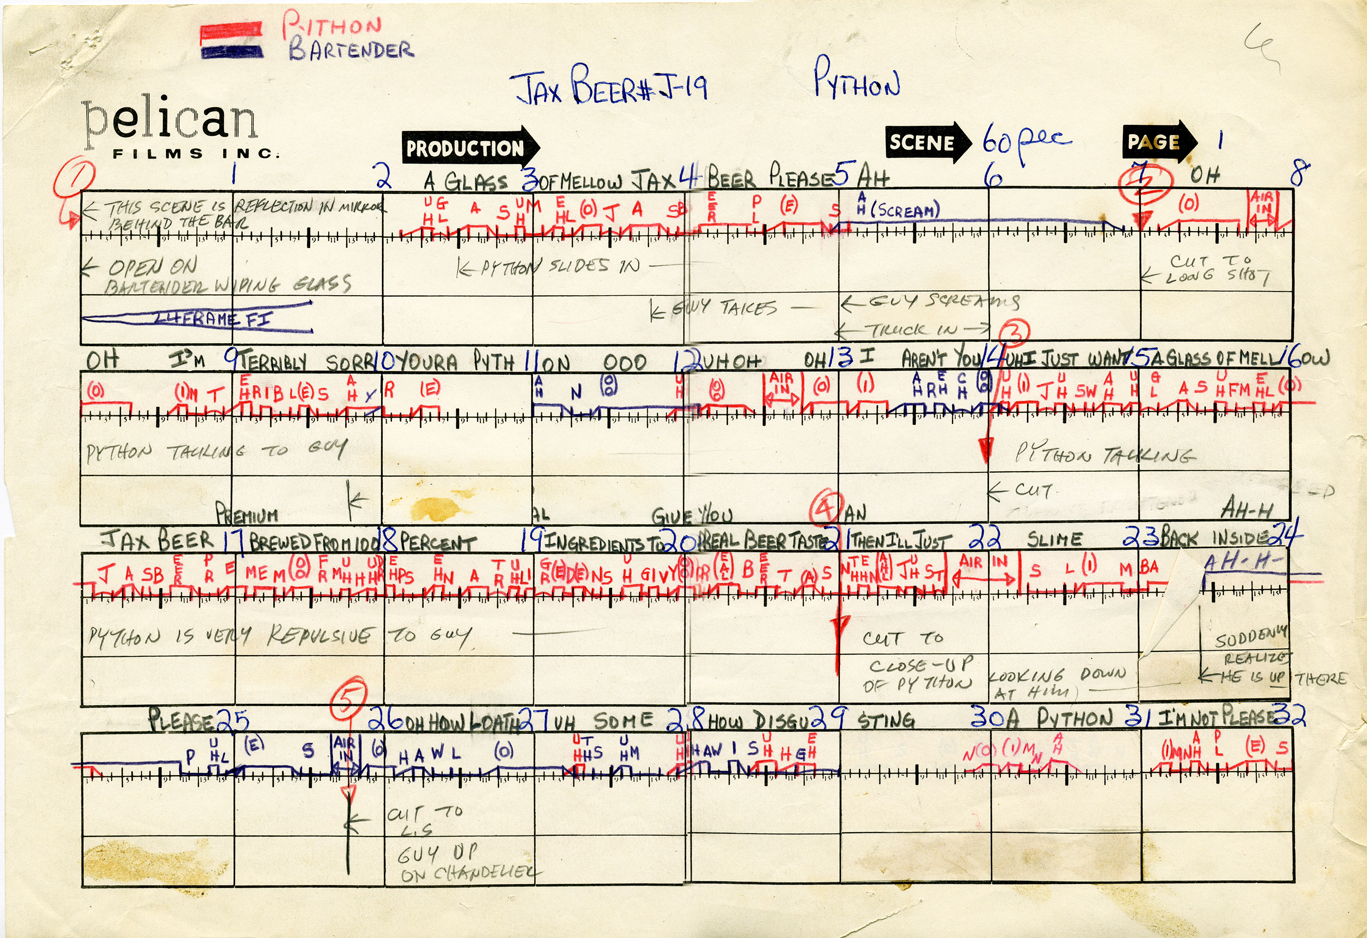 PYTHON
BARTENDER
JAX BEER # J-19 PYTHON
6
pelican
FILMS INC.
PRODUCTION
SCENE 60 sec
PAGE 1
1 1 2 A GLASS 3 OF MELLOW JAX 4 BEER PLEASE 5 AH 6 7 2 OH 8
THIS SCENE IS REFLECTION IN MIRROR
BEHIND THE BAR
UH GL A S UH M EHL (O) J A S B EER PL (E) S AH (SCREAM) (O) AIR IN
OPEN ON
BARTENDER WIPING GLASS
PYTHON SLIDES IN
CUT TO
LONG SHOT
24 FRAME FI
GUY TAKES
GUY SCREAMS
TRUCK IN
3
OH I'M 9 TERRIBLY SORR 10 YOUR A PYTH 11 ON OOO 12 UH OH OH 13 I AREN'T YOU 14 UH I JUST WANT 15 A GLASS OF MELL 16 OW
(O) (I) M T EHRIBL(E)S AH Y R (E) AH N (OO) UH (O) AIR IN (O) (I) AH R EH CH (OO) UH (I) JUH S W AH UH GL A S UH F M EHL (O)
PYTHON TALKING TO GUY
PYTHON TALKING
CUT
PREMIUM AL GIVE YOU 4 AN AH-H
JAX BEER 17 BREWED FROM 100 18 PERCENT 19 INGREDIENTS TO 20 REAL BEER TASTE 21 THEN I'LL JUST 22 SLIME 23 BACK INSIDE 24
J A S B EER PR E M E M (O) FR M UH H UH R EH P S EH N A T R UH L I GR (E) D (E) N S UH GIV Y (OO) R (E) AL B EER T (A) S N T EH EH N (AH) L J UH S T AIR IN S L (I) M BA AH-H-
PYTHON IS VERY REPULSIVE TO GUY
CUT TO
CLOSE-UP
OF PYTHON
LOOKING DOWN
AT HIM)
SUDDENLY
REALIZE
HE IS UP THERE
5
PLEASE 25 26 OH HOW LOATH 27 UH SOME 28 HOW DISGU 29 STING 30 A PYTHON 31 I'M NOT PLEASE 32
P UH L (E) S AIR IN (O) H A W L (O) UH T H S UH M UH H A W I S UH H G EH N (O) (I) M N AH (I) M N AH PL (E) S
CUT TO
L.S
GUY UP
ON CHANDELIER